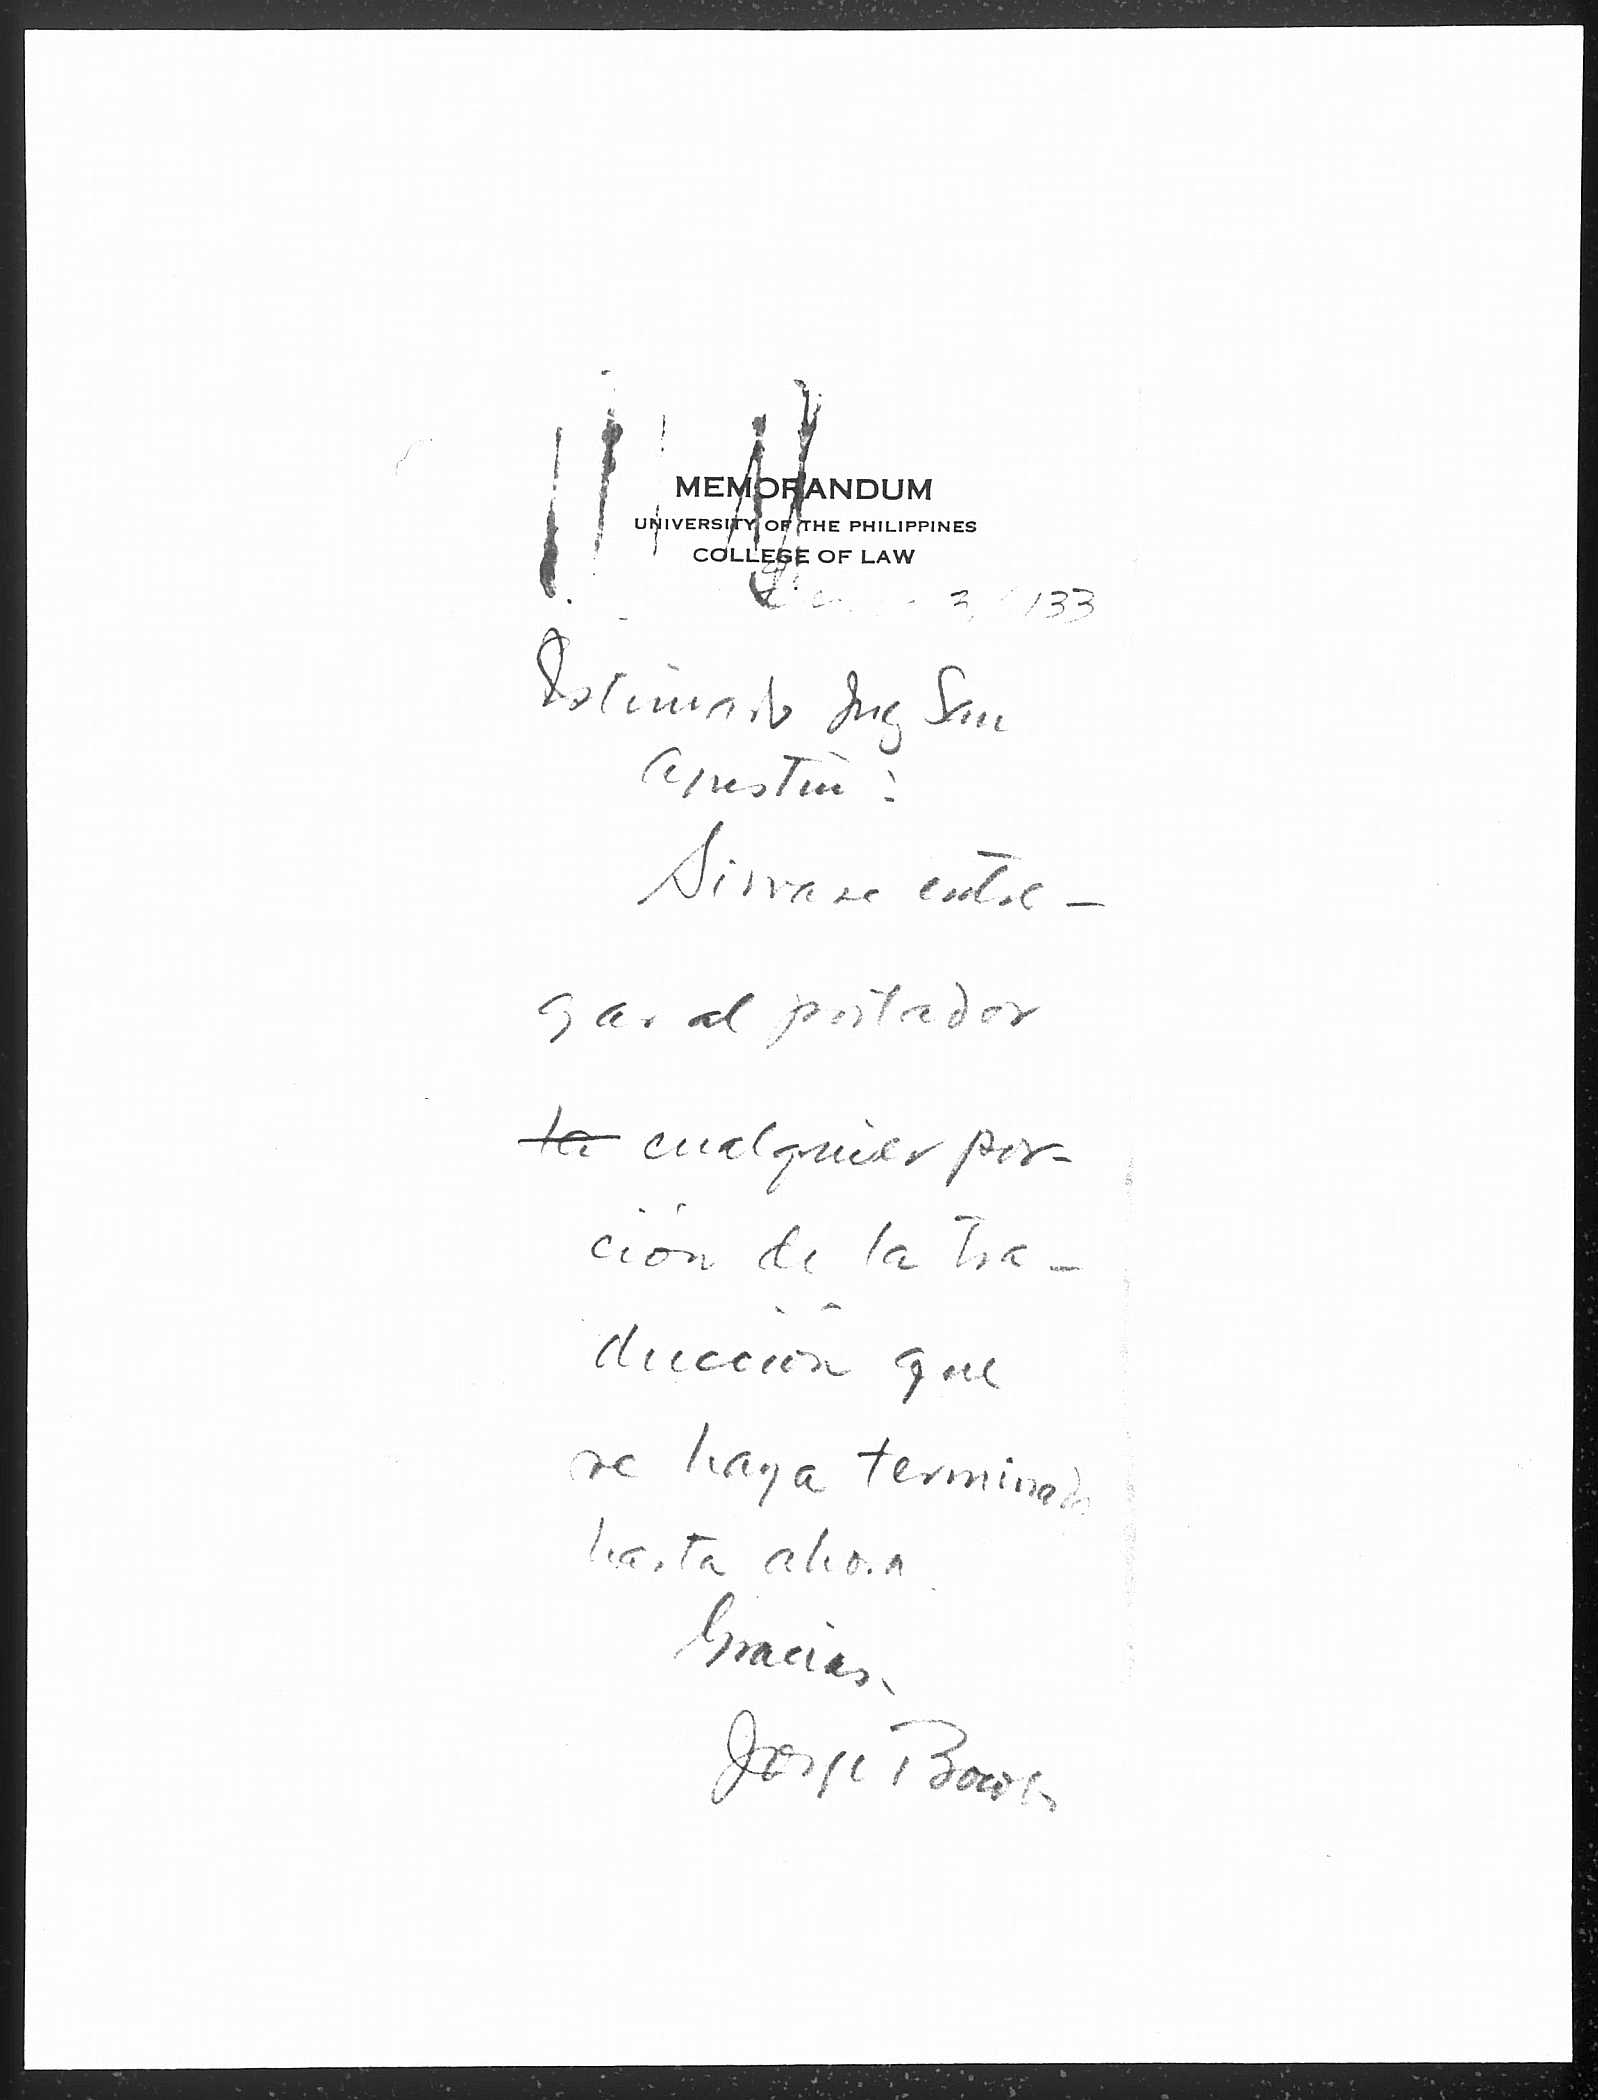 MEMORANDUM
UNIVERSITY OF THE PHILIPPINES
COLLEGE OF LAW
3, 133
Estimado Ing San
Agustin:
Sirvase entre-
gar al portador
la cualquier por-
ción de la tra-
ducción que
se haya terminado
hasta ahora.
Gracias,
Jorge Bocobo